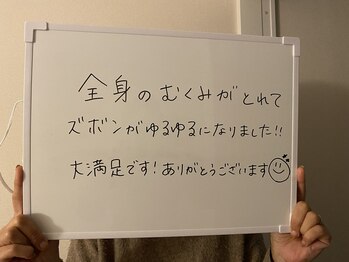 全身のむくみがとれて
ズボンがゆるゆるになりました!!
大満足です!ありがとうございます